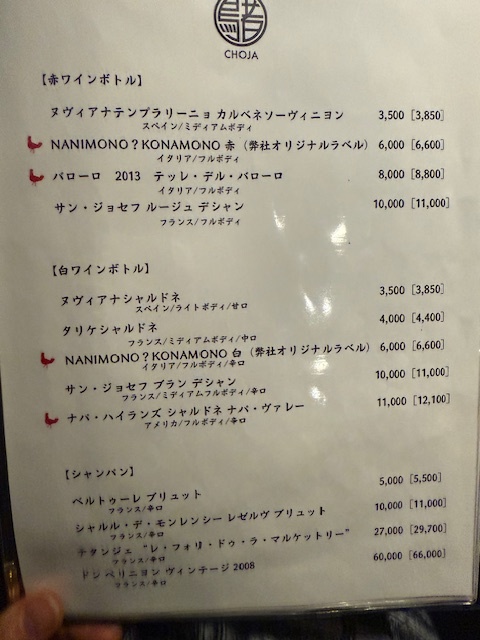 CHOJA
【赤ワインボトル】
ヌヴィアナテンプラリーニョ カルベネソーヴィニヨン 3,500 [3,850]
スペイン/ミディアムボディ
NANIMONO?KONAMONO 赤（弊社オリジナルラベル） 6,000 [6,600]
イタリア/フルボディ
バローロ 2013 テッレ・デル・バローロ 8,000 [8,800]
イタリア/フルボディ
サン・ジョセフ ルージュ デシャン 10,000 [11,000]
フランス/フルボディ
【白ワインボトル】
ヌヴィアナシャルドネ 3,500 [3,850]
スペイン/ライトボディ/甘口
タリケシャルドネ 4,000 [4,400]
フランス/ミディアムボディ/中口
NANIMONO?KONAMONO 白（弊社オリジナルラベル） 6,000 [6,600]
イタリア/フルボディ/辛口
サン・ジョセフ ブラン デシャン 10,000 [11,000]
フランス/ミディアムフルボディ/辛口
ナパ・ハイランズ シャルドネ ナパ・ヴァレー 11,000 [12,100]
アメリカ/フルボディ/辛口
【シャンパン】
ベルトゥーレ ブリュット 5,000 [5,500]
フランス/辛口
シャルル・デ・モンレンシー レゼルヴ ブリュット 10,000 [11,000]
フランス/辛口
テタンジェ “レ・フォリ・ドゥ・ラ・マルケットリー” 27,000 [29,700]
フランス/辛口
ドンペリニヨン ヴィンテージ 2008 60,000 [66,000]
フランス/辛口